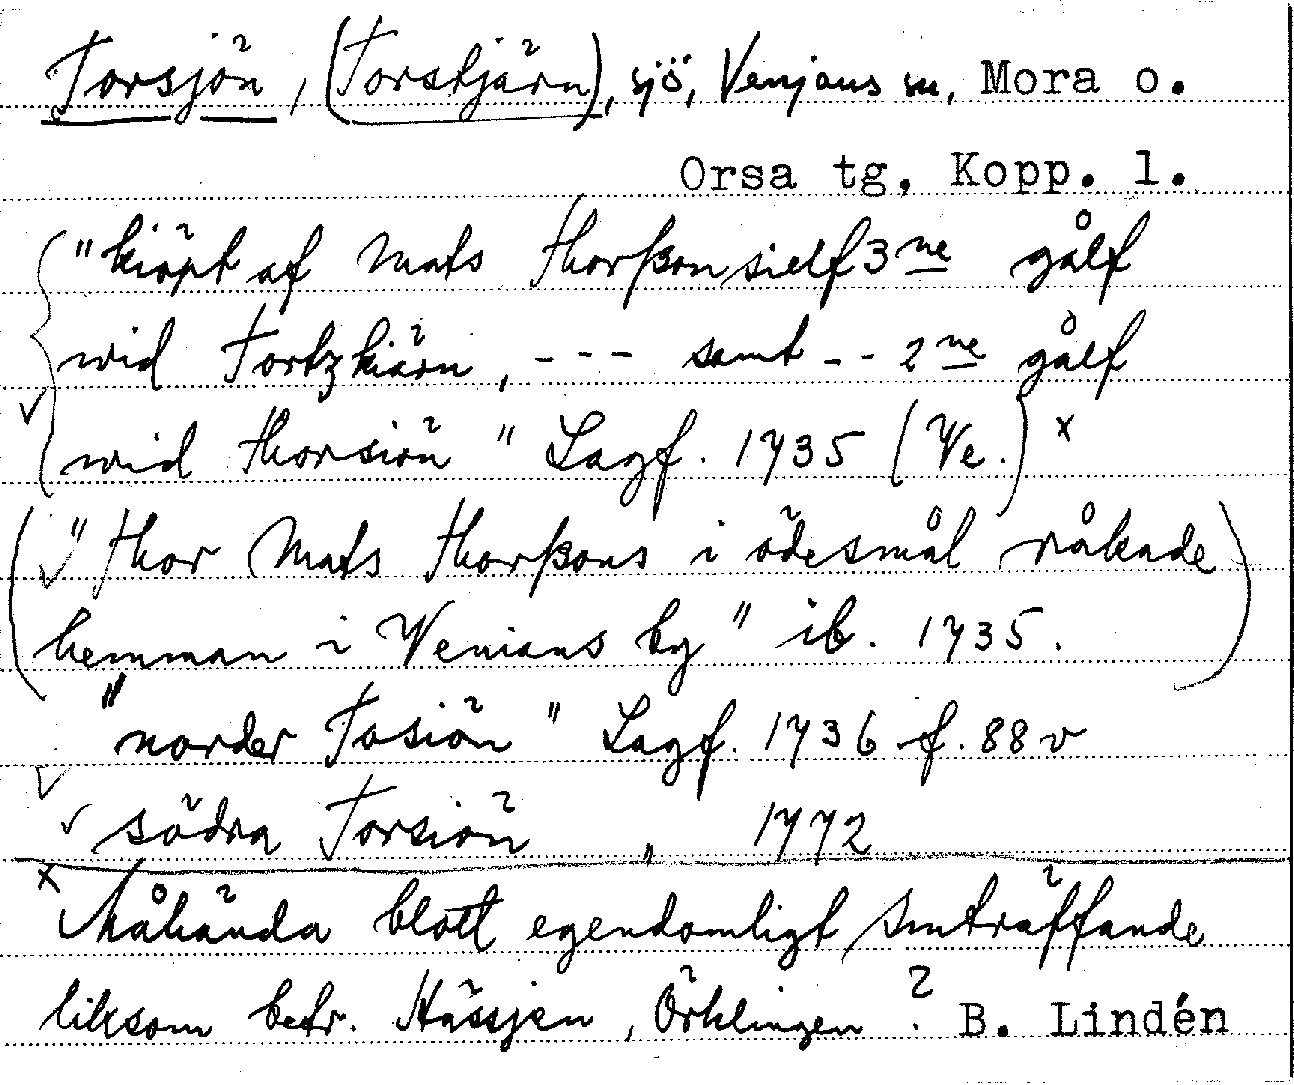 Torsjön, (Torstjärn), sjö, Venjans sn, Mora o.
Orsa tg, Kopp. l.
"kiöpt af Mats Thorßon sielf 3ne gålf
wid Tortzkiärn, --- samt -- 2ne gålf
wid Thorsiön" Lagf. 1735 (Ve.) x
("Thor Mats Thorßons i ödesmål råkade
hemman i Wenians by" ib. 1735.)
"norder Tosiön" Lagf. 1736 f. 88 v
södra Torsiön " 1772
x Måhända blott egendomligt smträffande
liksom betr. Hässjen, Örklingen? B. Lindén